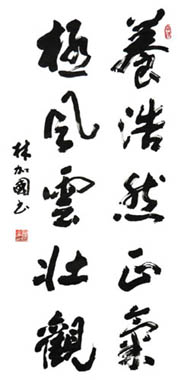 養浩然正氣
極風雲壯觀
林加國书